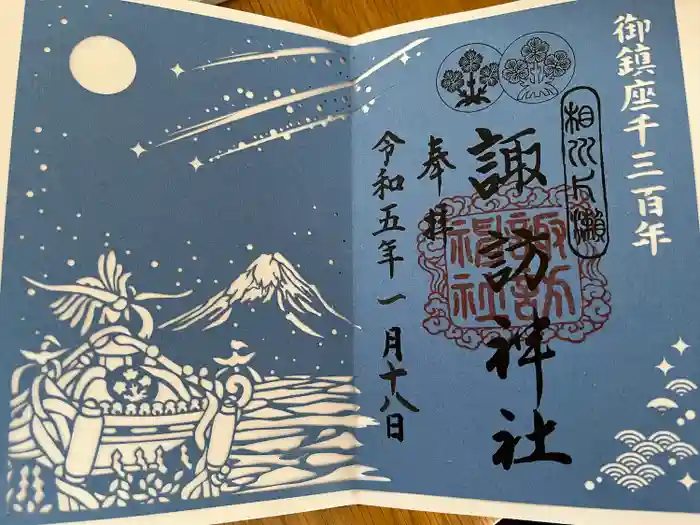 御鎮座千三百年
相州片瀬
諏訪神社
諏訪
神社
奉拝
令和五年一月十八日